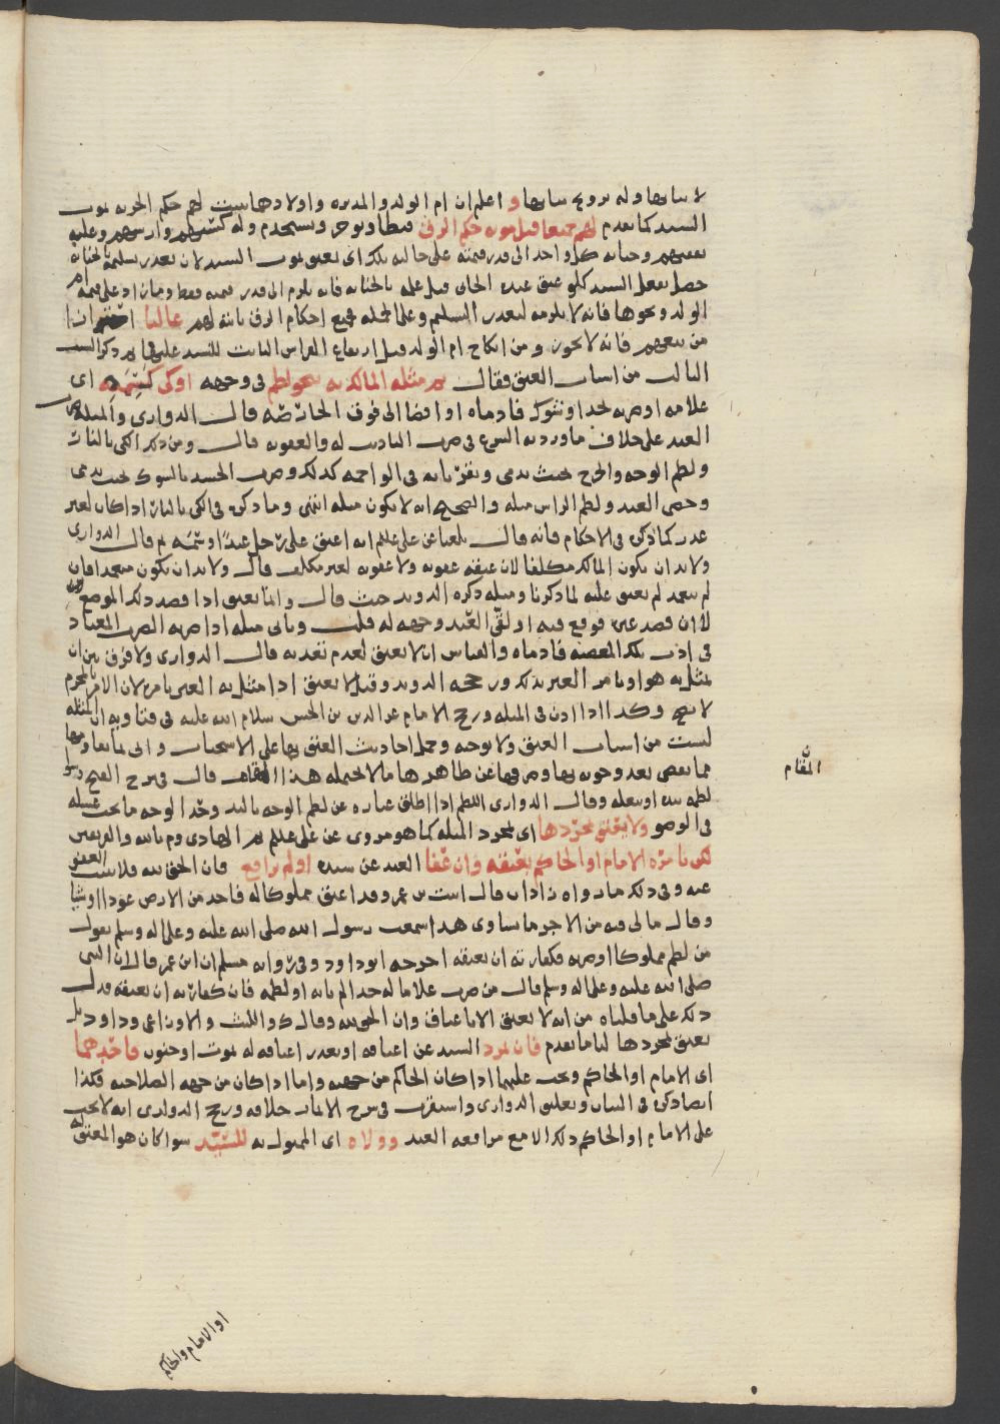 واعلم ان ام الولد والمدبره واولادهما يثبت لهم حكم الحريه بموت
السيد كما تقدم لهم جميعا قبل موته حكم الرق فيطا ويوجر ويستخدم وله كسبهم وارشهم وعليه
نفقتهم وجنايه كل واحد الى قدر قيمته على حاله تلك اى يعتق بموت السيد لان تعذر تسليمه بالجنايه
حصل بفعل السيد كلو عتق عبده الجانى قبل علمه بالجنايه فانه يلزم الى قدر قيمته فقط وما زاد على قيمه ام
الولد ونحوها فانه لا يلزمه لتعذر التسليم وعلى الجمله فجميع احكام الرق ثابته لهم غالبا احتراز ا
من بيعهم فانه لا يجوز ومن انكاح ام الولد قبل ارتفاع الفراش الثابت للسيد عليها ثم ذكر السبب
الثالث من اسباب العتق فقال ثم مثله المالك به بنحو لطم فى وجهه او كى كسمه اى
علامه او ضربه بحد او شوك فادماه او افضا الى فوق الحارصه قال الدوارى والمثله ضرب
العبد على خلاف ما ورد به الشرع فى ضرب التاديب له والعقوبه قال ومن ذلك الكى بالنار
ولطم الوجه والجرح بحيث يدمى وبقر بابه فى الواجمه كذلك وضرب الجسد بالشوك بحيث يدمى
وخصى العبد ولطم الراس مثله والصحيح انه لا يكون مثله انتهى وما ذكره فى الكى بالنار اذا كان لغير
عذر كما ذكره فى الاحكام فانه قال بلغنا عن على عليلم انه اعتق على رجل عبدا وشمه ثم قال الدوارى
ولا بد ان يكون المالك مكلفا لان عتقه عقوبه ولا عقوبه لغير مكلف قال ولا بد ان يكون متعمدا فان
لم يتعمد لم يعتق عليه لما ذكرنا ومثله ذكره الدويد حيث قال وانما يعتق اذا قصد ذلك الموضع
لا ان قصد غيره فوقع فيه او لقى العبد وجهه له قلت وياتى مثله اذا ضربه الضرب المعتاد
فى ادب تلك المعصيه فادماه والقياس ان لا يعتق لعدم تعديه قال الدوارى ولا فرق بين ان
يمثل به هو او يامر الغير بذلك ورجحه الدويد وقيل لا يعتق اذا مثل به الغير بامره لان الامر بالمحرم
لا يصح وكذا اذا اذن فى المثله ورجح الامام عز الدين بن الحسن سلام الله عليه فى فتاويه ان المثله
ليست من اسباب العتق ولا توجبه وحمل احاديث العتق بها على الاستحباب
مما يقضى بعد وجوبه بها وصرفها عن ظاهرها ما لا يحتمله هذا المقام قال فى شرح الفتح
لطمه بيده او بنعله وقال الدوارى اللطم اذا اطلق عباره عن لطم الوجه باليد وحد الوجه ما يجب غسله
فى الوضو ولا يعتق بمجردها اى بمجرد المثله كما هو مروى عن على عليلم ثم الهادى وم بالله والفريقين
لكن يامره الامام او الحاكم بعتقه وان عفا العبد عن سيده او لم يرافع فان الحق لله فلا يثبت العفو
عنه وفى ذلك ما رواه زادان قال اتيت بن عمر وقد اعتق مملوكا له فاخذ من الارض عودا او شيا
وقال مالى فيه من الاجر ما يساوى هذا سمعت رسول الله صلى الله عليه وعلى اله وسلم يقول
من لطم مملوكا او ضربه فكفارته ان يعتقه اخرجه ابو داود وفى روايه مسلم ان ابن عمر قال ان النبى
صلى الله عليه وعلى اله وسلم قال من ضرب غلاما له حدا لم ياته او لطمه فان كفارته ان يعتقه فدل
ذلك على ما قلناه من انه لا يعتق الا باعتاق وان الحق لله وقال ك والليث والاوزاعى وداود بل
يعتق بمجردها لنا ما تقدم فان تمرد السيد عن اعتاقه او تعذر اعتاقه له بموت او جنون فاحدهما
اى الامام او الحاكم ويجب عليهما اذا كان الحاكم من جهته واما اذا كان من جهه الصلاحيه فكذا
ايضا ذكره فى البيان وتعليق الدوارى واستقرب فى شرح الاثمار خلافه ورجح الدوارى انه لا يجب
على الامام او الحاكم ذلك الا مع مرافعه العبد وولاه اى الممثول به للسيد سوا كان هو المعتق له
المقام
او الامام والحاكم